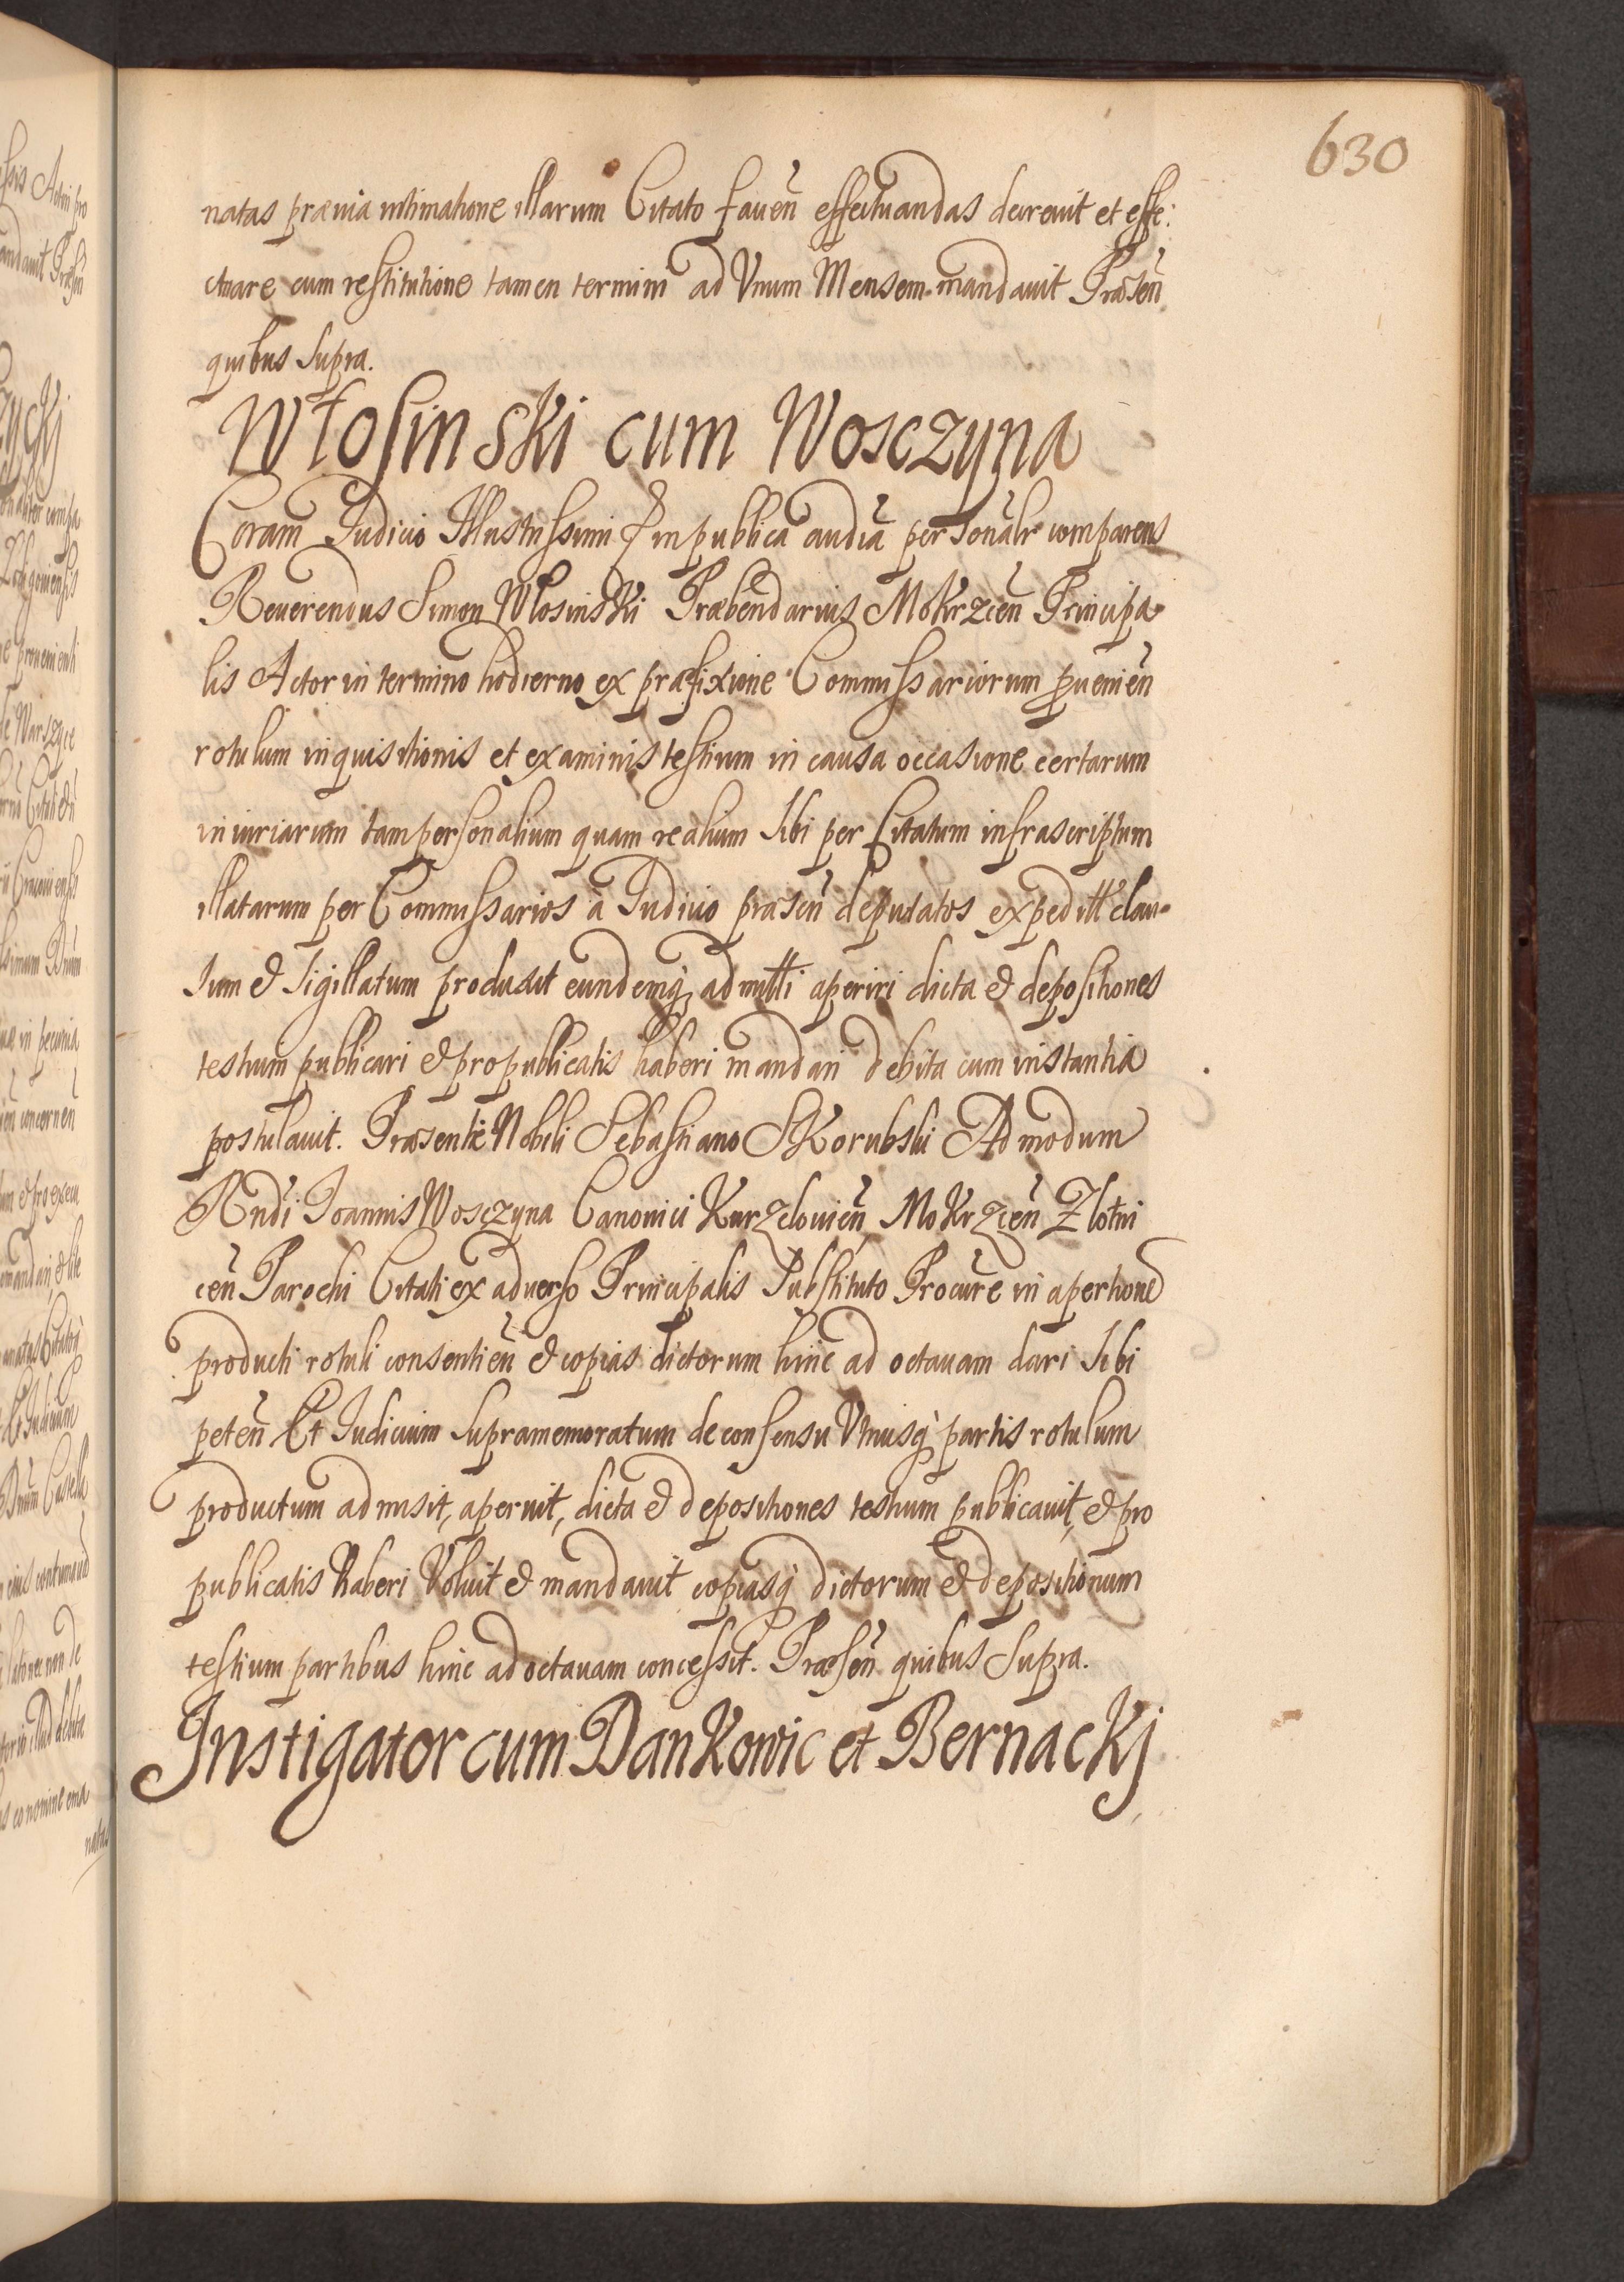 630
natas prævia intimatione illarum Citato faueñ effectuandas decrevit et effe:
ctuare cum restitutione tamen termini ad Vnum Mensem mandavit Præseñ
quibus supra.
Włosinski cum Wosczyna
Coram Judicio Illustrissimi in publica audia personalr comparens
Reuerendus Simon Włosinski Præbendarius Mokrzceñ Principa=
lis Actor in termino hodierno ex præfixione Commissariorum pueniẽn
rotulum inquisitionis et examinis testium in causa occasione certarum
iniuriarum tam personalium quam realium sibi per Citatum infrascriptum
illatarum per Commissarios à Judicio præseñ deputatos expeditt clau=
sum & sigillatum produxit eundemq, admitti aperiri dicta & depositiones
testium publicari & pro publicatis haberi mandari debita cum instantia
postulavit. Præsente Nobili Sebastiano Skorubski Admodum
Rndi Joannis Wosczyna Canonici Kurzelovieñ Mokrzceñ Zlotni
ceñ Parochi Citati ex adverso Principalis Substituto Procure in apertione
producti rotuli consentieñ & copias dictorum hinc ad octavam dari sibi
peteñ Et Judicium supramemoratum de consensu Vtriusq partis rotulum
productum admisit, aperuit, dicta & depositiones testium publicavit, & pro
publicatis haberi Voluit & mandavit copiasq dictorum & depositionum
testium partibus hinc ad octavam concessit. Præseñ quibus Supra.
Instigator cum Dankowic et Bernackj